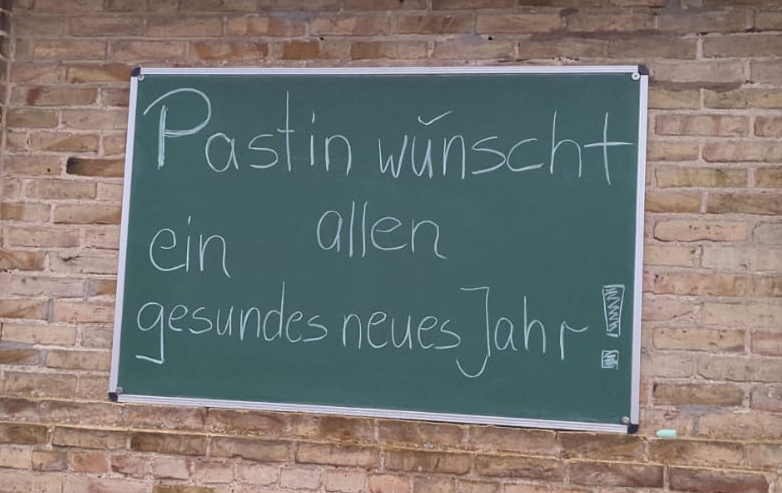 Pastin wünscht
ein allen
gesundes neues Jahr!